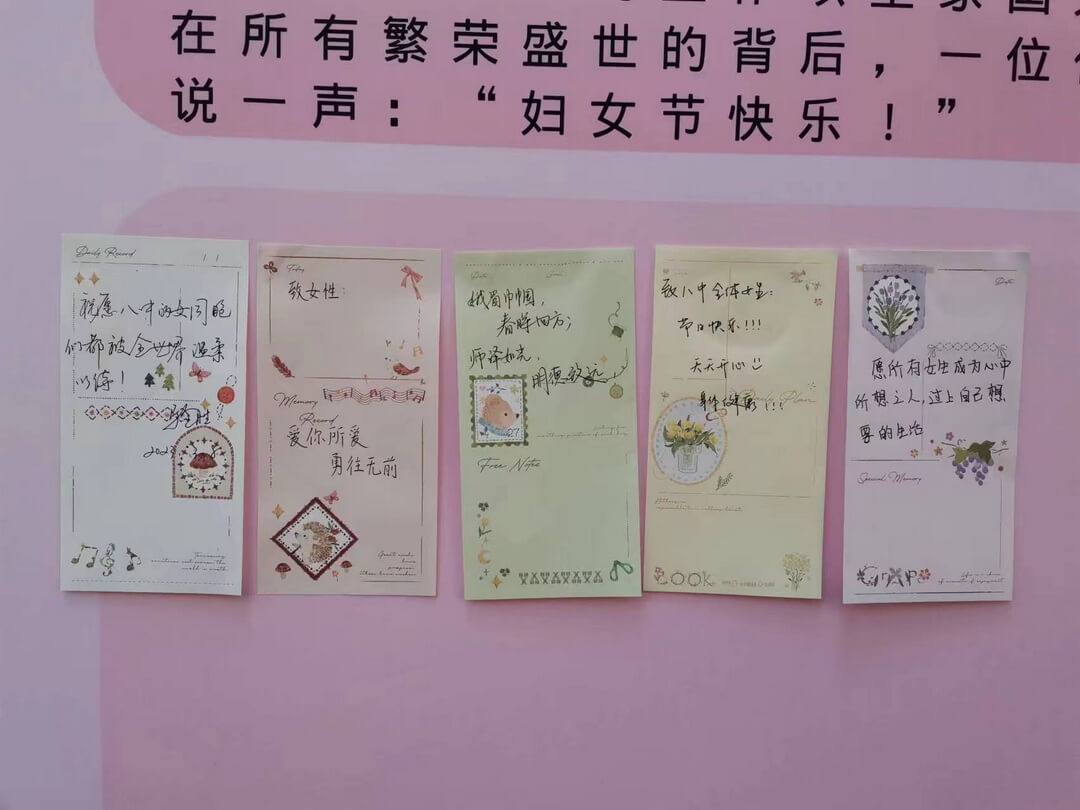 在所有繁荣盛世的背后，一位
说一声：“妇女节快乐！”
Daily Record
祝愿八中的女同胞
们都被全世界温柔
以待！
Today
致女性：
Memory
Record
爱你所爱
勇往无前
Good
have
purpose
巾帼，
春晖四方；
师泽如光，
明德致远
27
Free Notes
致八中全体女生：
节日快乐！！！
天天开心
身体健康！！！
Plan
LOOK
Date
愿所有女生成为心中
所想之人，过上自己想
要的生活
Special Memory
GrApe